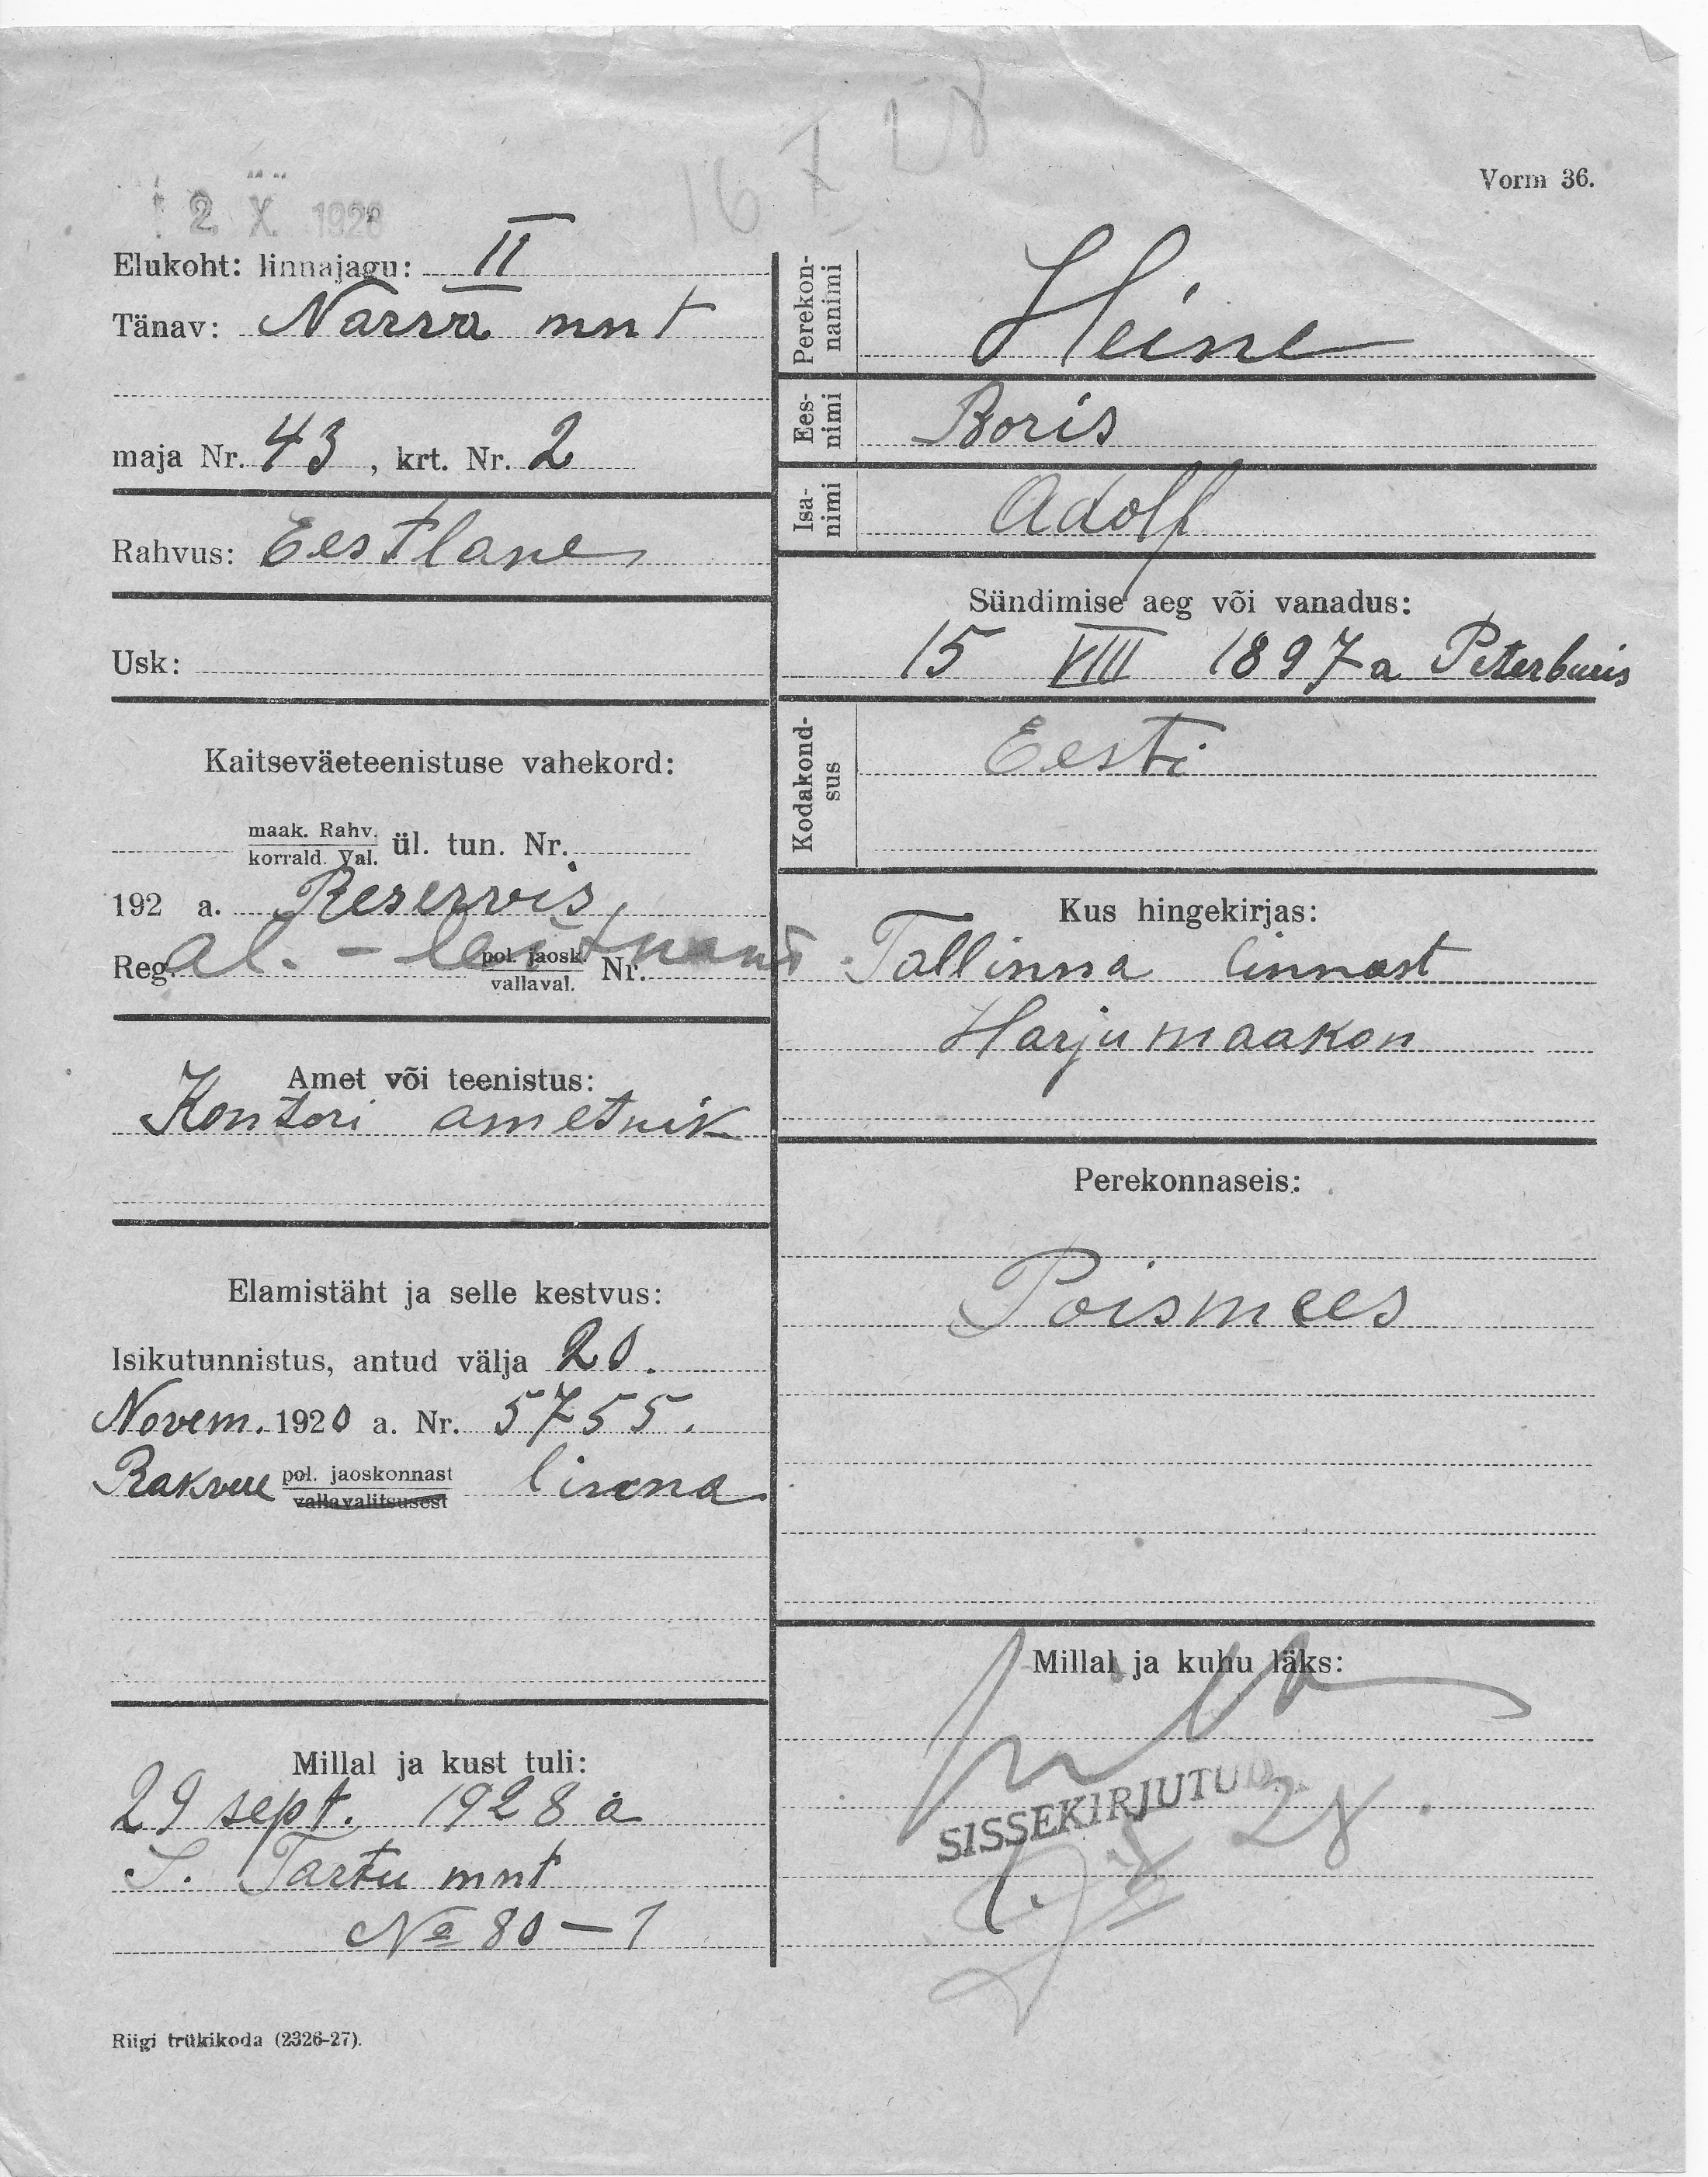 16 7 28
Vorm 36.
2 X 1928
Elukoht: linnajagu: II
Tänav: Narva mnt
maja Nr. 43, krt. Nr. 2
Rahvus: Eestlane
Usk:
Kaitseväeteenistuse vahekord:
maak. Rahv.
korrald. Val. ül. tun. Nr.
192 a. Reservis,
Reg. al. - leitnant pol. jaosk. Nr.
vallaval.
Amet või teenistus:
Kontori ametnik
Elamistäht ja selle kestvus:
Isikutunnistus, antud välja 20.
Novem. 1920 a. Nr. 5755.
Rakvere pol. jaoskonnast linna
vallavalitsusest
Millal ja kust tuli:
29 sept. 1928 a
S. Tartu mnt
№ 80-1
Riigi trükikoda (2326-27).
Perekon-
nanimi
Heine
Ees-
nimi
Boris
Isa-
nimi
Adolf
Sündimise aeg või vanadus:
15 VIII 1897 a Peterburis
Kodakond-
sus
Eesti
Kus hingekirjas:
Tallinna linnast
Harju maakon
Perekonnaseis:
Poismees
Millal ja kuhu läks:
SISSEKIRJUTUD
28.